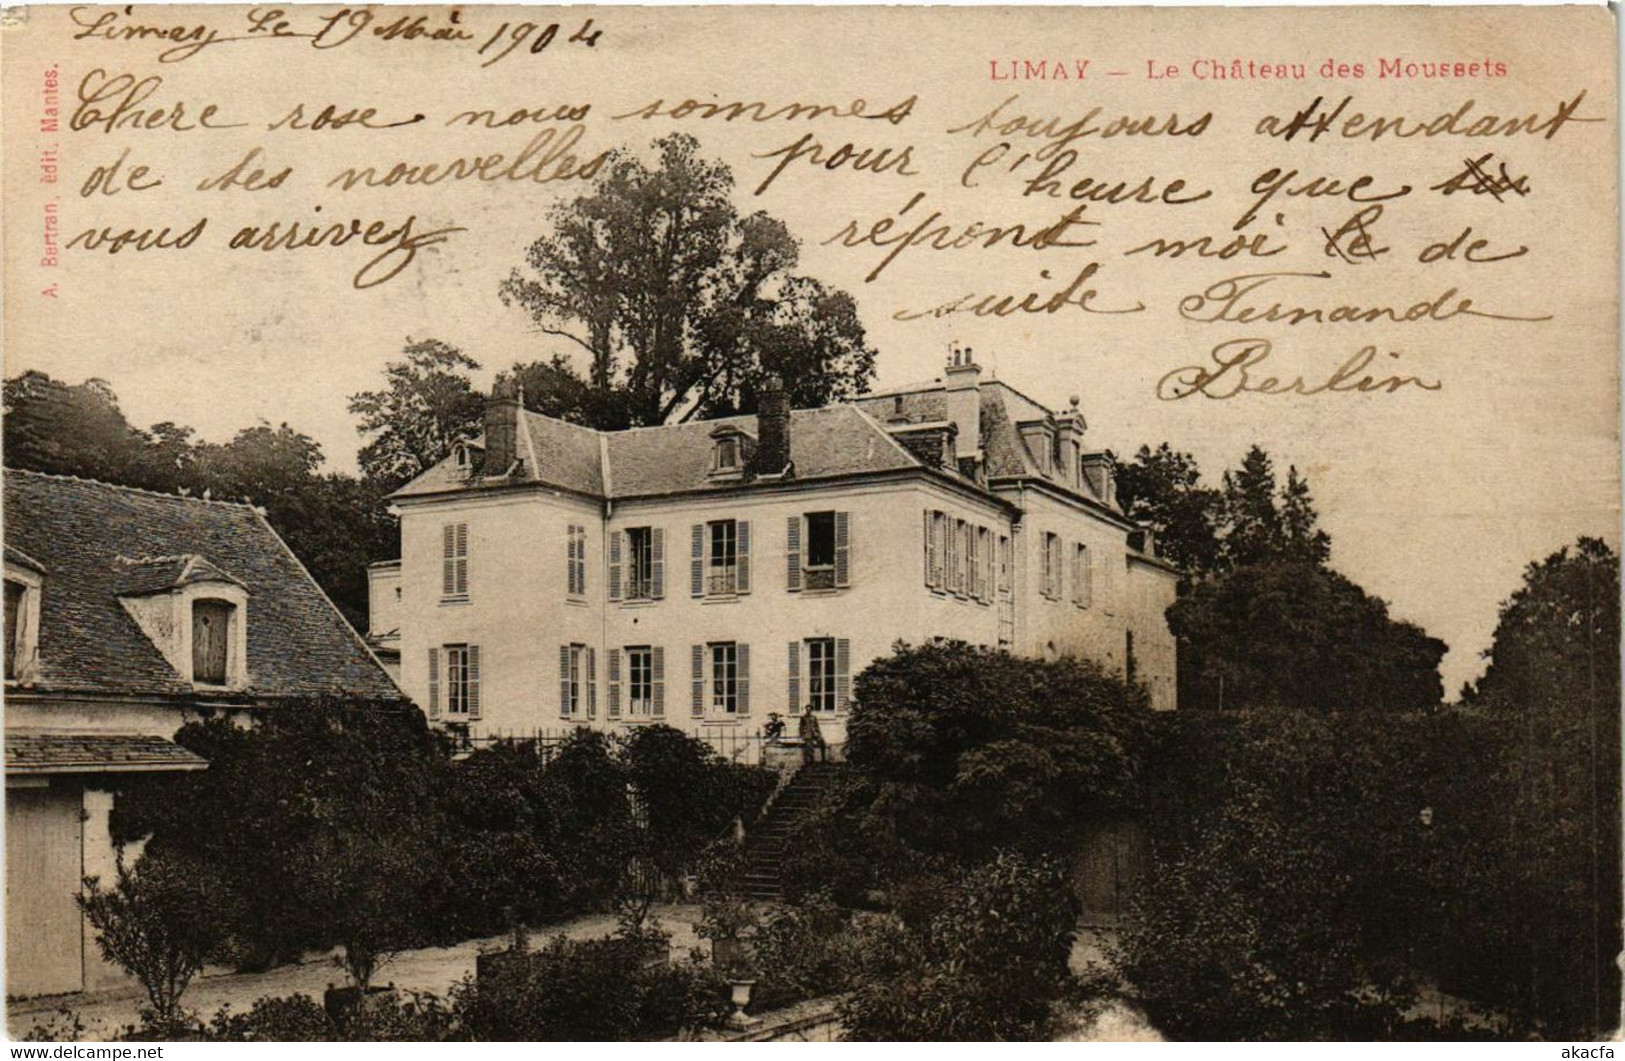 Limay Le 19 Mai 1904
LIMAY — Le Château des Moussets
A. Bertran, édit. Mantes.
Chere rose nous sommes toujours attendant
de tes nouvelles pour l'heure que
vous arrivez répont moi le de
suite Fernande
Berlin
akacfa
akacfa - delcampe.net